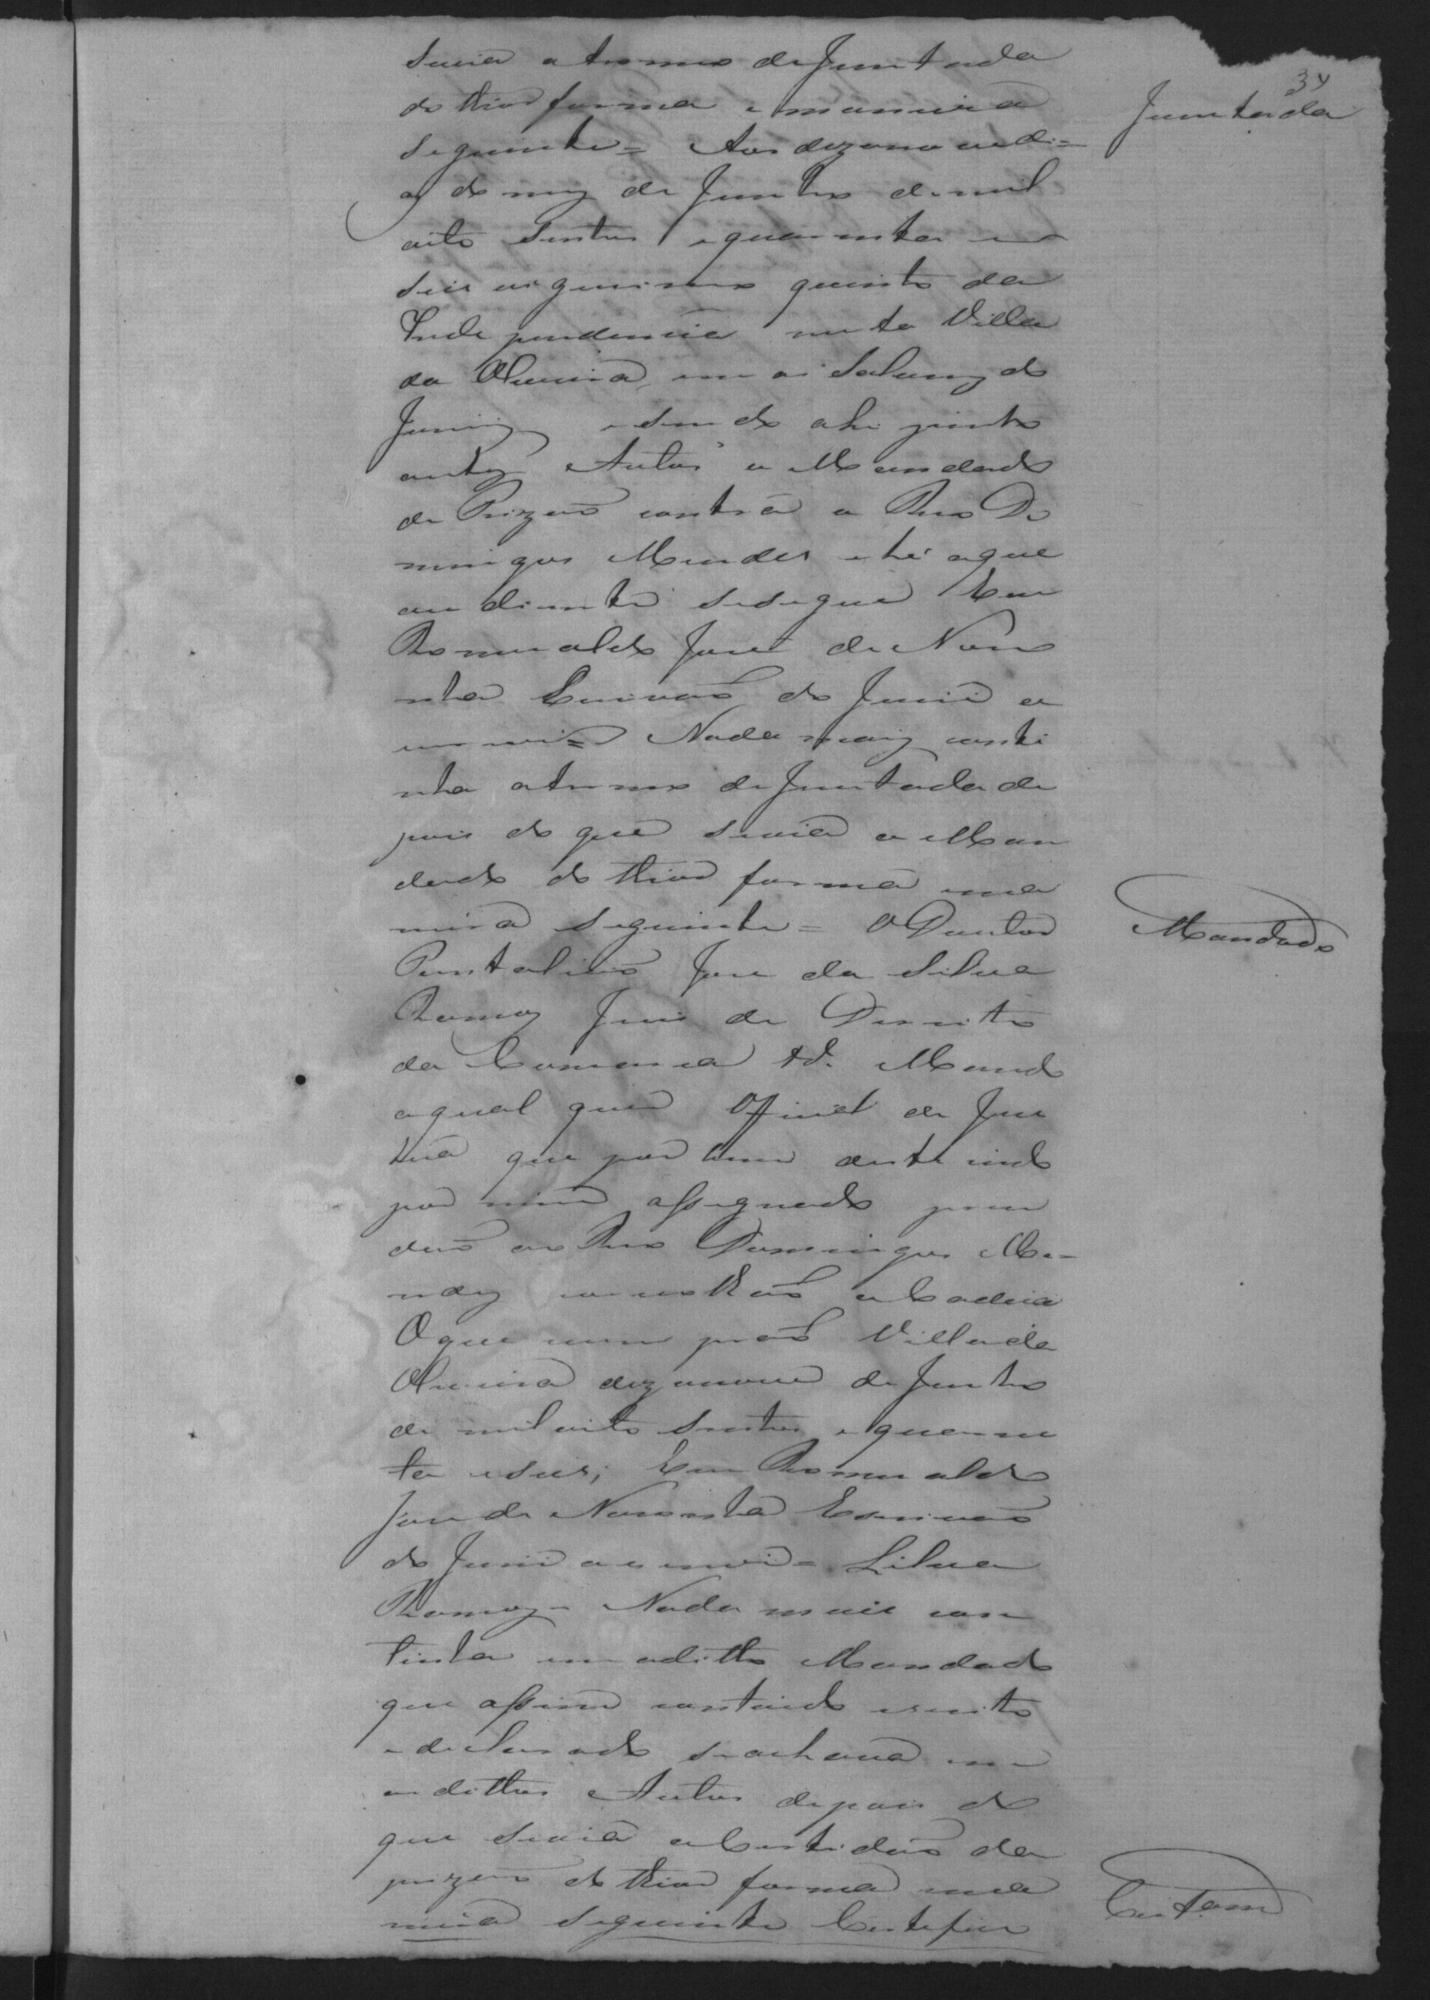 34
Juntada
seuia o termo de Juntada
do thior forma e maneira
seguinte = Aos dezanove di=
as do mez de Junho de mil
oito sentos e quarenta e
seis vigesimo quinto da
Independencia nesta Villa
da Oliveira, em as Salas do
Jury e sendo ahi junto
antos Autos o Mandado
de Prizaõ contra o Reo Do
mingos Mendes e hé o que
au diante sesegue Eu
Romualdo José de Noro
nha Escrivaõ do Juri o
escrevi = Nada mais conti
nha o termo de Juntada de
pois do que seuia o Man
dado do thior forma ema
neira seguinte = O Doutor
Pantaliaõ Jose da Silva
Ramos Juis de Direito
da Comarca &ª. Mando
aqual quer Official de Jus
tica que por bem deste indo
por mim assignado pren
daõ ao Reo Domingos Me=
ndes e a Cadeia
O que cum praõ Villa da
Oliveira dezanove de Junho
de mil oito sentos e quaren
ta e seis; Eu Romualdo
Jose de Noronha Escrivaõ
do Juri o escrevi = Silva
Ramos = Nada mais con
tinha em o ditto Mandado
que assim contiudo escrito
e declarado se achava em
os dittos Autos depois do
que seuia a Certidaõ da
prizaõ do thior forma ema
neira seguinte Certefico
Mandado
Certam